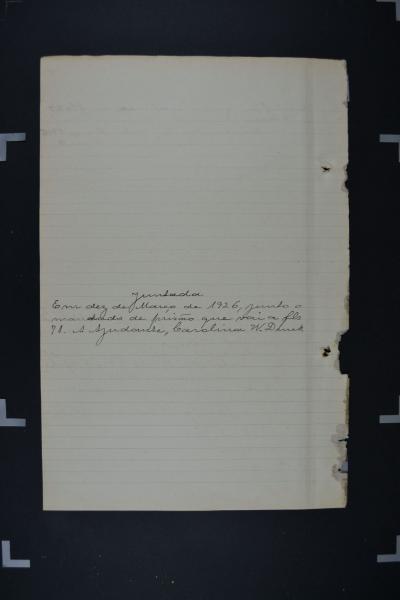 Juntada
Em dez de Março de 1926, junto o
mandado de prisão que vai a fls
71. A Ajudante, Carolina W.